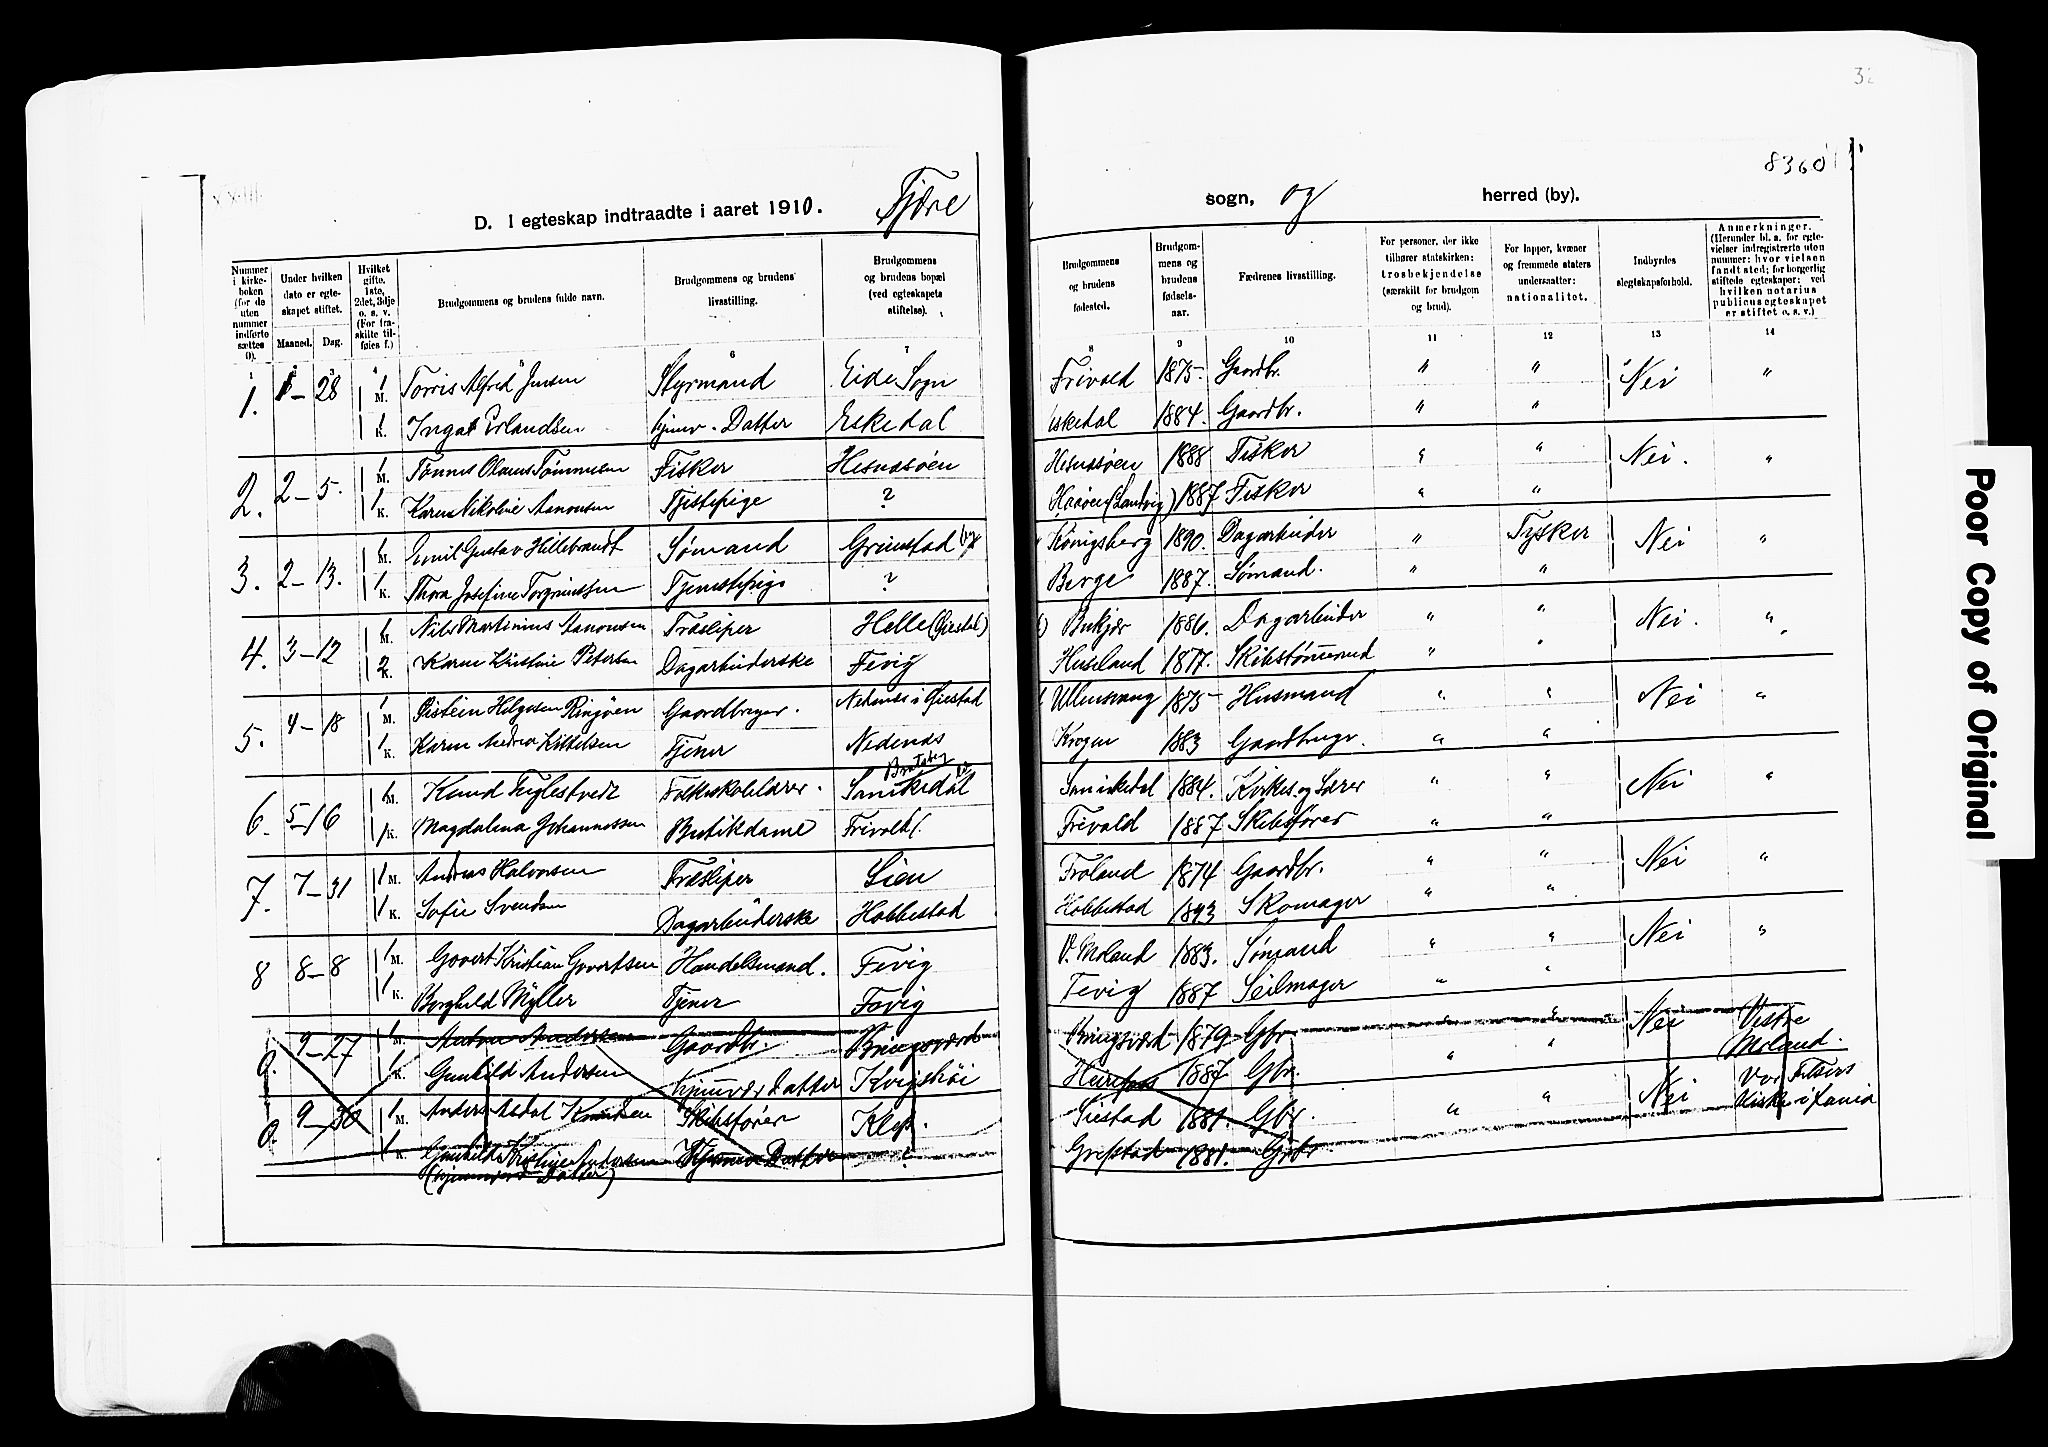 32
8360
D. I egteskap indtraadte i aaret 1910. Fjære sogn, og herred (by).
Nummer i kirkeboken (for de uten nummer indførte sættes 0).
Under hvilken dato er egteskapet stiftet.
Maaned. Dag.
Hvilket gifte. 1ste, 2det, 3dje o. s. v. (For fraskilte tilføies f.)
Brudgommens og brudens fulde navn.
Brudgommens og brudens livsstilling.
Brudgommens og brudens bopæl (ved egteskapets stiftelse).
Brudgommens og brudens fødested.
Brudgommens og brudens fødselsaar.
Fædrenes livsstilling.
For personer, der ikke tilhører statskirken: trosbekjendelse (særskilt for brudgom og brud).
For lapper, kvæner og fremmede staters undersaatter: nationalitet.
Indbyrdes slegtskapsforhold.
Anmerkninger. (Herunder bl. a. for egtevielser indregistrerte uten nummer: hvor vielsen fandt sted; for borgerlig stiftede egteskaper: ved hvilken notarius publicus egteskapet er stiftet o. s. v.)
1 2 3 4 5 6 7 8 9 10 11 12 13 14
1. 1 – 28 1 M. Torris Alfred Jensen Styrmand Eide Sogn Frivold 1875 Gaardbr. " " Nei "
1 K. Inga Erlandsen hjemv. Datter Eskedal Eskedal 1884. Gaardbr. " "
2. 2 – 5. 1 M. Tønnes Olaus Tønnesen Fisker Hesnesøen Hesnesøen 1888 Fisker " " Nei. "
1 K. Karen Nikoline Aanonsen Tjistepige ? Haaøen (Landvig) 1887 Fisker " "
3. 2 – 13. 1 M. Emil Gustav Hillebrandt Sømand Grimstad by Königsberg 1890. Dagarbeider " Tysker Nei "
1 K. Thora Josefine Torgrimssen Tjenestepige ? Berge 1887. Sømand. " "
4. 3 – 12 1 M. Nils Martinius Aanonsen Træsliper Helle (Øiestad) Bukjær 1886. Dagarbeider " " Nei. "
2 K. Karen Kristine Petersen Dagarbeiderske Fevig Huseland 1877. Skibstømmermd " "
5. 4 – 18 1 M. Øistein Helgesen Ringøen Gaardbruger. Nedenes i Øiestad Ullensvang 1875 Husmand " " Nei "
1 K. Karen Andrea Kittelsen Tjener Nedenes Krogen 1883 Gaardbrugr. " "
6. 5 – 16 1 M. Knud Fuglestvedt Folkeskolelærer. Sannikedal Bratsberg Sannikedal 1884. Kirkes. og Lærer " " Nei "
1 K. Magdalena Johannessen Butikdame Frivold Frivold 1887 Skibsfører " "
7. 7 – 31 1 M. Andreas Halvorsen Træsliper Lien Froland 1874 Gaardbr. " " Nei "
1 K. Sofie Svendsen Dagarbeiderske Hobbestad Hobbestad 1893 Skomager " "
8 8 – 8 1 M. Govert Kristian Govertsen Handelsmand. Fevig V. Moland 1883. Sømand " " Nei "
1 K. Borghild Myller Tjener Fevig Fevig 1887 Seilmager " "
0. 9 – 27 1 M. Anton Andersen Gaardbr. Bringsværd Bringsværd 1879 Gbr. " " Nei Vestre Moland.
1 K. Gunhild Andersen hjemvær Datter Kvigshöi 1887 Gbr. " "
0. 9 – 30 1 M. Anders Aadal Knudsen Skibsfører Klep. 1881. Gbr. " " Nei Vor Frelsers Kirke i Xania
1 K. Gunhilda Andersen Hjemmev Datter ? Grefstad 1881. Gbr.
(hjemmevær Datter)
Poor Copy of Original